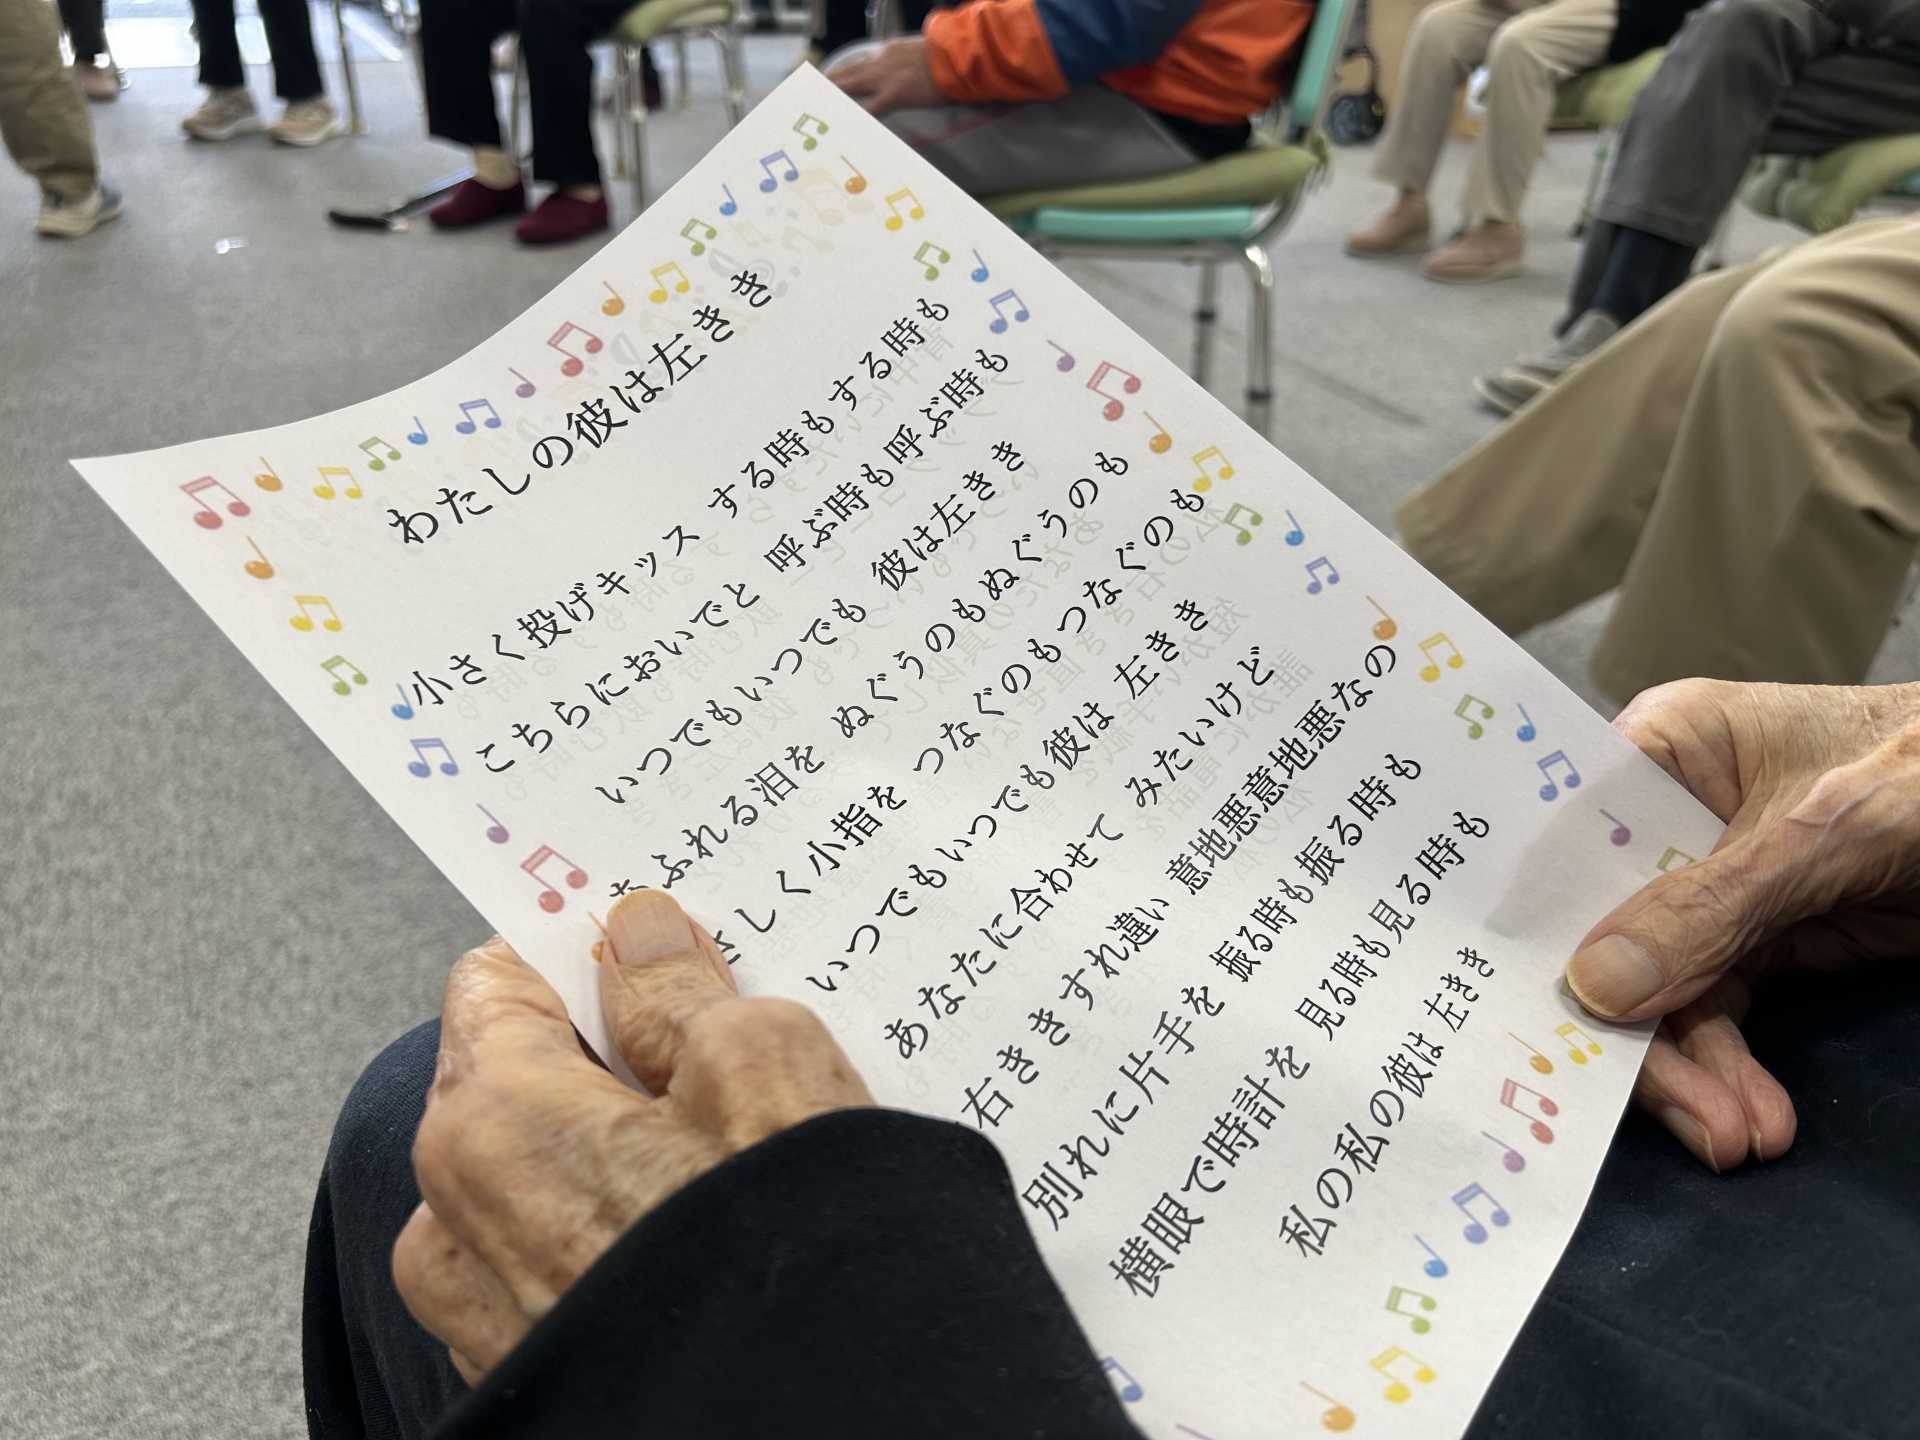 わたしの彼は左きき
小さく投げキッス する時もする時も
こちらにおいでと 呼ぶ時も呼ぶ時も
いつでもいつでも 彼は左きき
あふれる泪を ぬぐうのもぬぐうのも
さしく小指を つなぐのもつなぐのも
いつでもいつでも彼は 左きき
あなたに合わせて みたいけど
右ききすれ違い 意地悪意地悪なの
別れに片手を 振る時も振る時も
横眼で時計を 見る時も見る時も
私の私の彼は 左きき